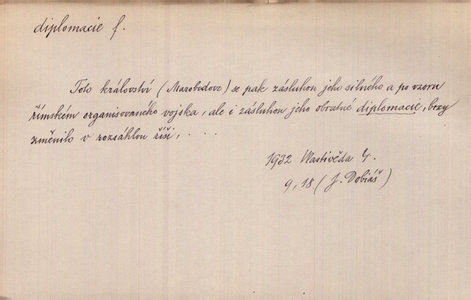 diplomacie f.
Toto království (Marobodovo) se pak zásluhou jeho silného a po vzoru
římském organisovaného vojska, ale i zásluhou jeho obratné diplomacie, brzy
změnilo v rozsáhlou říši, . . . .
1932 Vlastivěda 4.
9, 18 (J. Dobiáš)